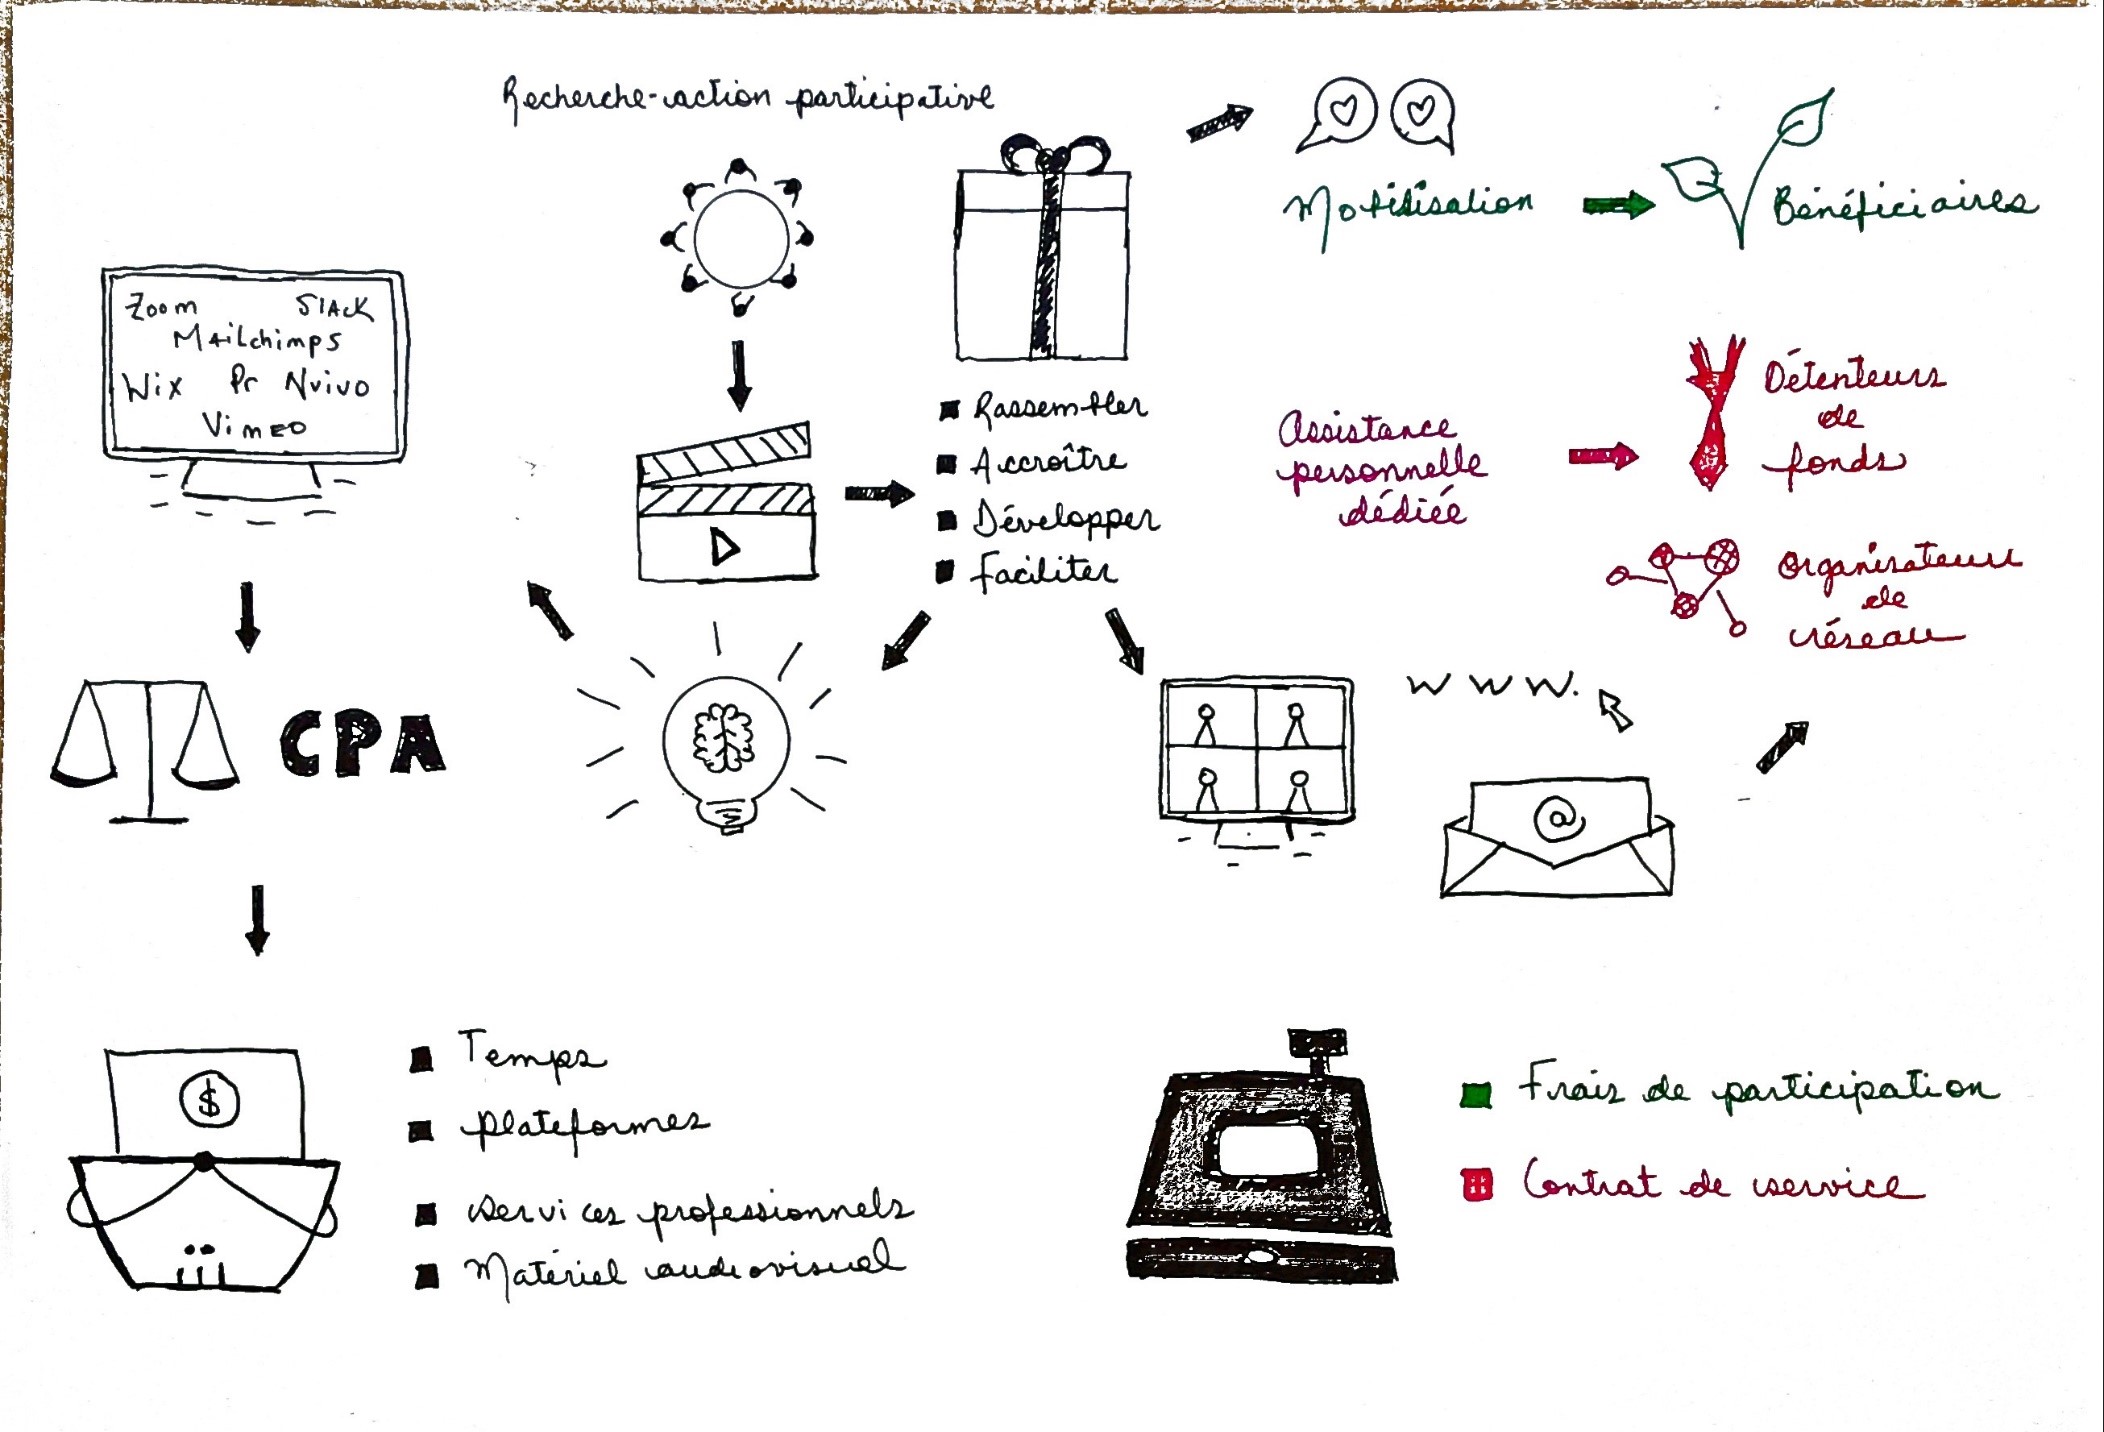 Recherche-action participative
Motilisation
Bénéficiaires
Zoom Slack
Mailchimps
Wix Pr Nvivo
Vimeo
Rassembler
Accroître
Développer
Faciliter
Assistance
personnelle
dédiée
Détenteurs
de
fonds
Organisateurs
de
réseau
www.
@
CPA
$
Temps
Plateformes
Services professionnels
Matériel audiovisuel
Frais de participation
Contrat de service